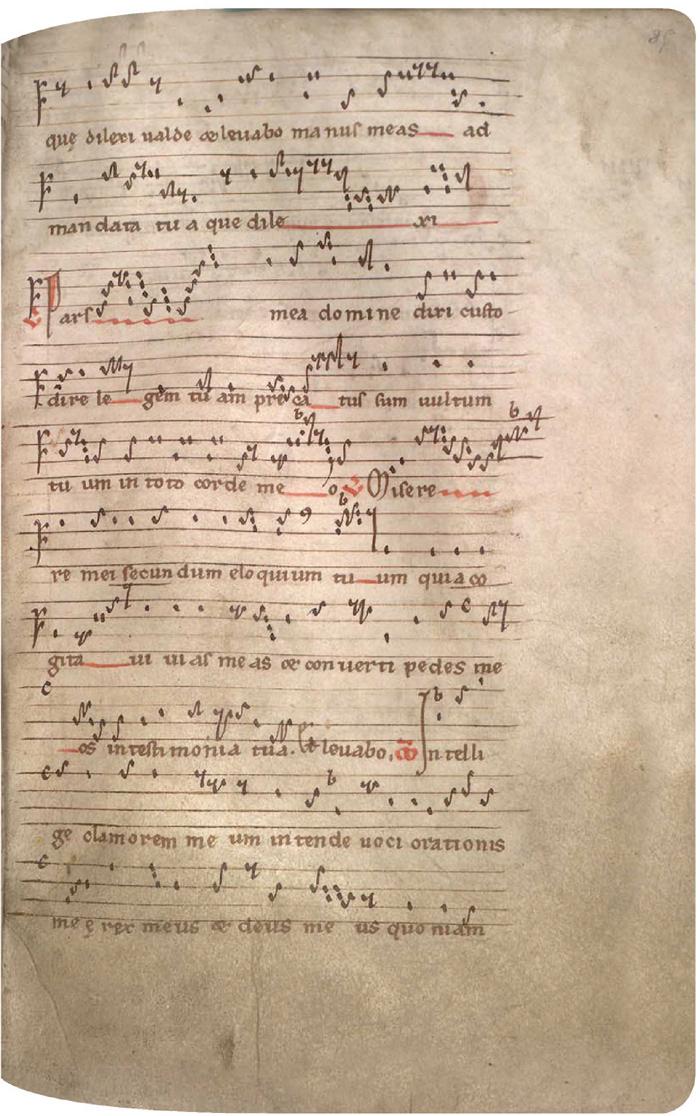 quę dilexi ualde & leuabo manus meas ad
mandata tua que dile xi
V Pars mea domine dixi custo
dire le gem tu am preca tus sum uultum
tu um in toto corde me o V Misere
re mei secundum eloquium tu um quia co
gita ui uias meas & conuerti pedes me
os in testimonia tua. & leuabo. Intelli
ge clamorem me um intende uoci orationis
me ę rex meus & deus me us quoniam